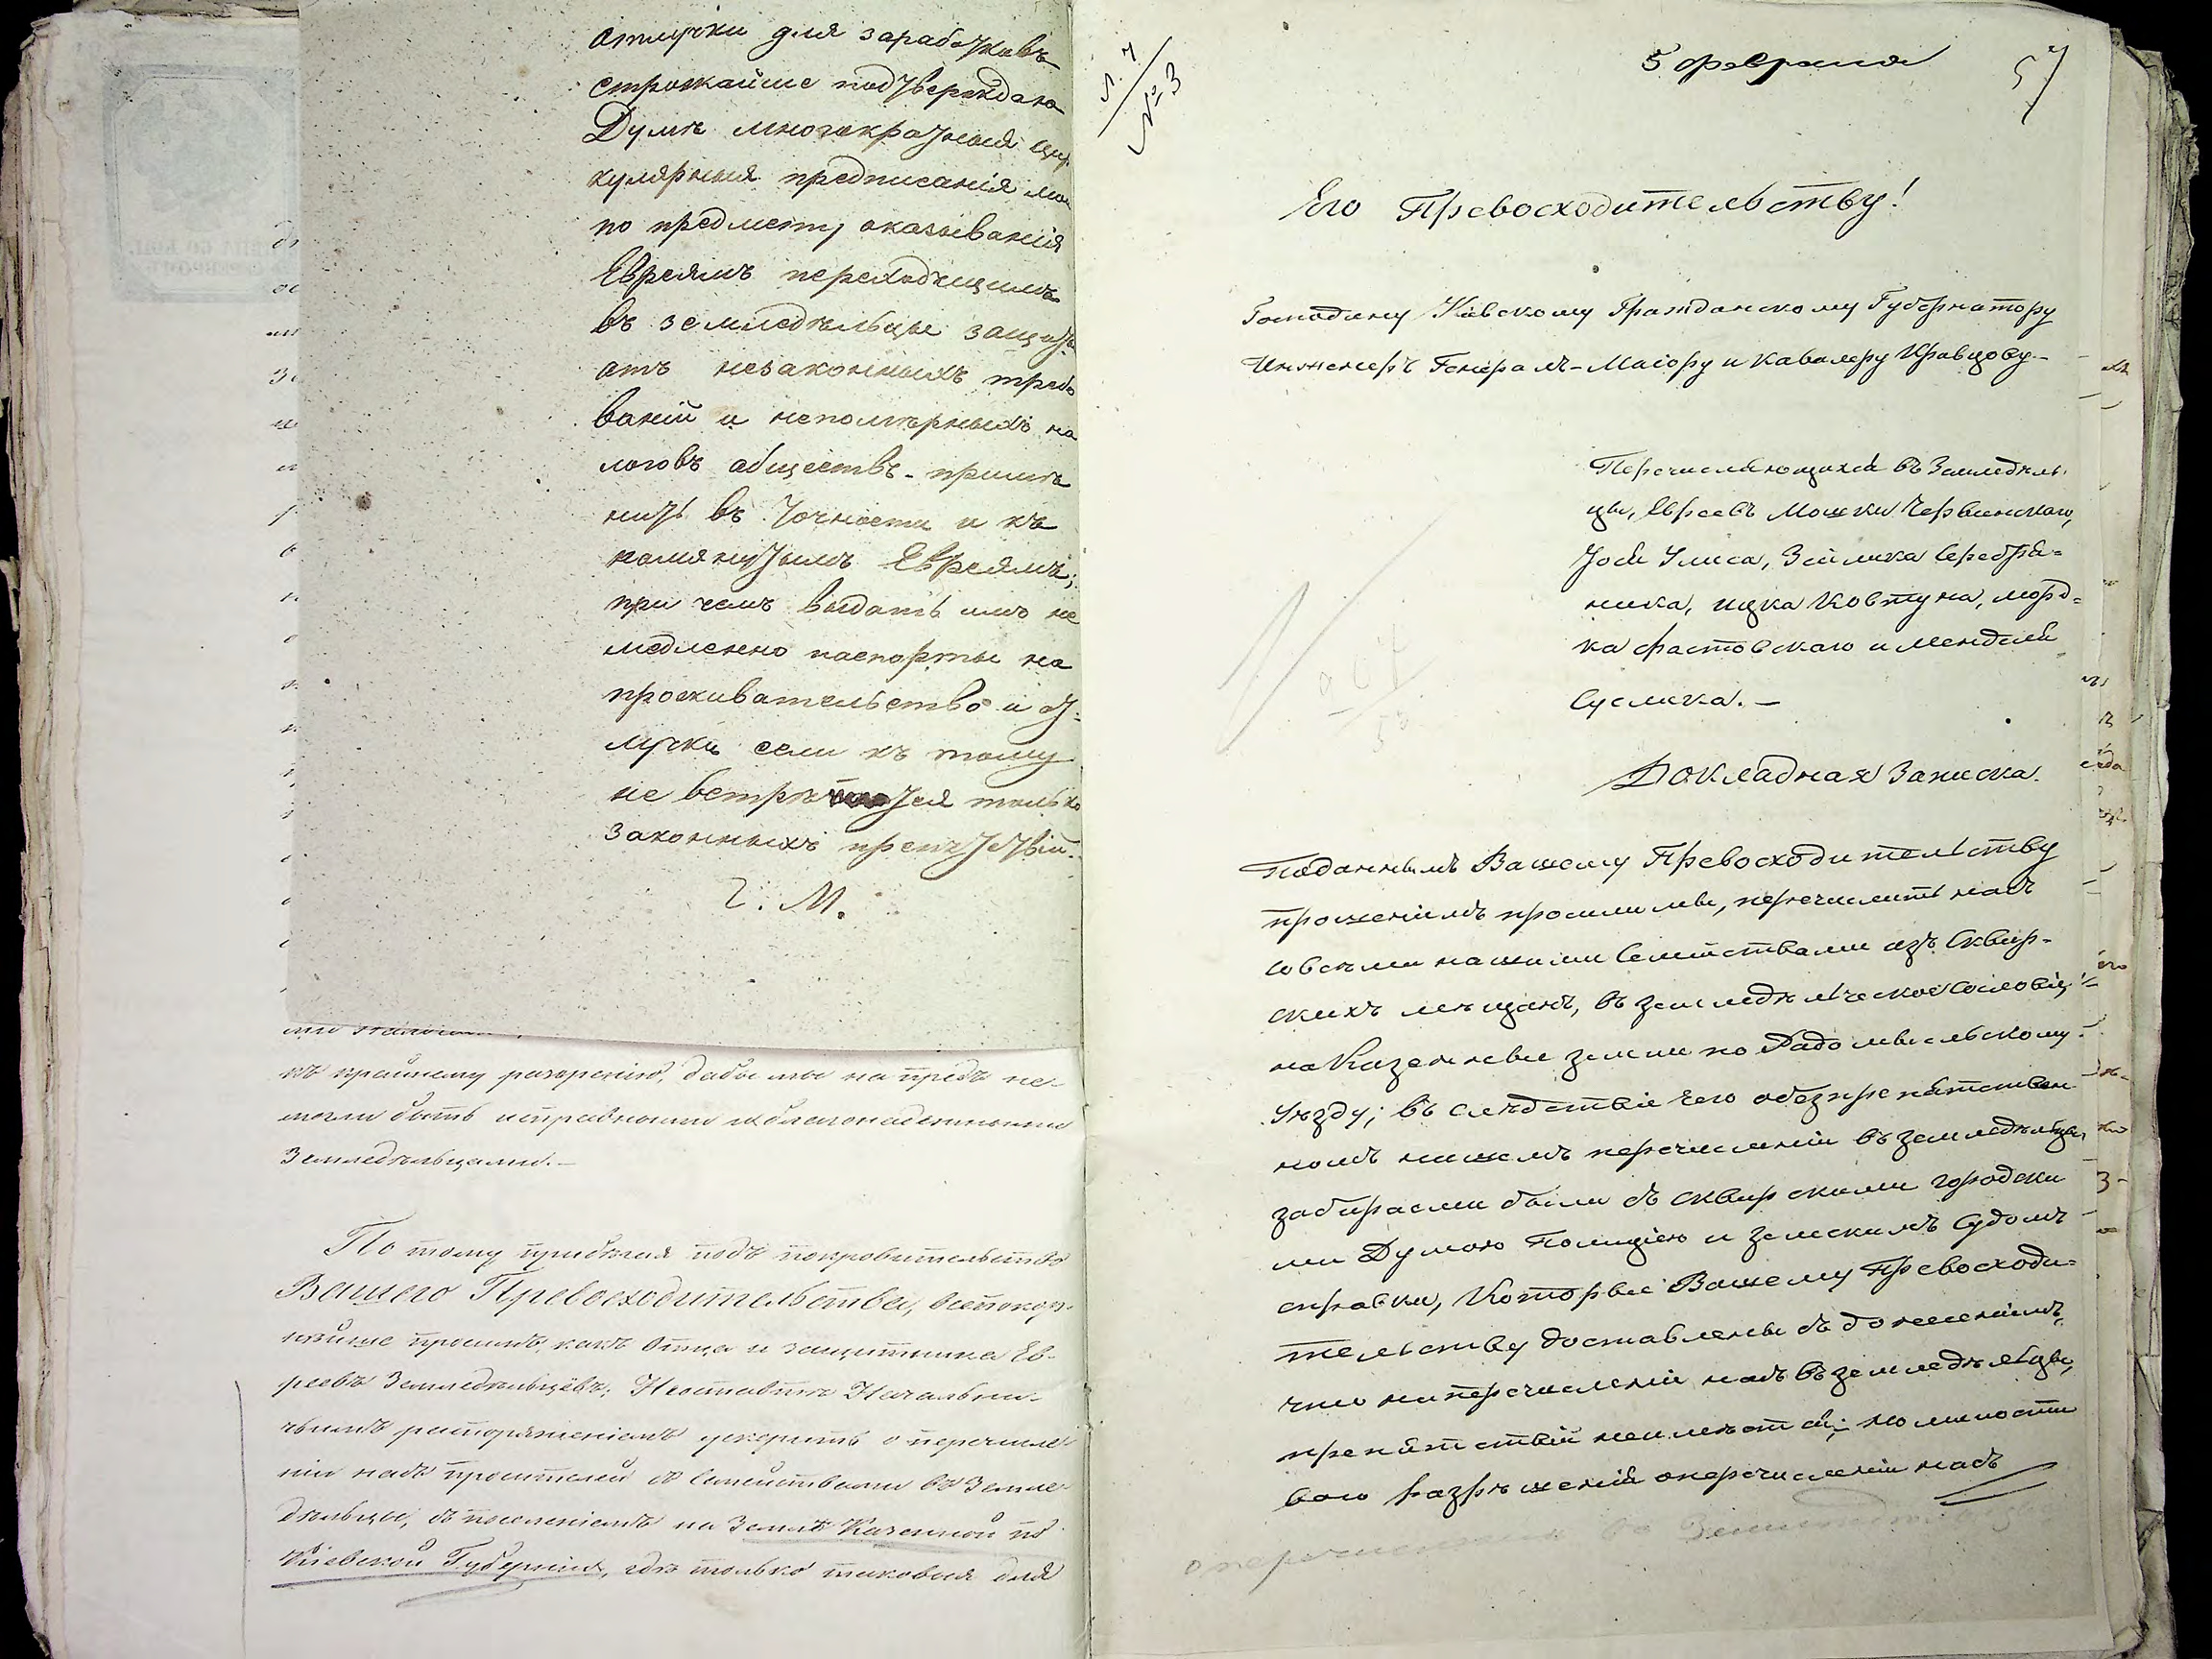 отлучки для заработковъ
строжайше подтверждаю
Думѣ многократныя цир
кулярныя предписанія мои
по предмету оказыванія
Евреямъ переходящимъ
въ земледѣльцы защиты
отъ незаконныхъ требо
ваній и непомѣрныхъ на
логовъ обществъ - примѣ
нить въ точности и къ
помянутымъ Евреямъ;
при чемъ выдать имъ не
медленно паспорты на
проживательство и от-
лучки если къ тому
не встрѣтится только
законныхъ препятствій.
Г. М.
къ крайнему разоренію, дабы мы на предъ не-
могли быть исправными и благонадежными
Земледѣльцами. -
По тому прибѣгая подъ покровительство
Вашего Превосходительства, всепокор-
нѣйше просимъ, какъ Отца и защитника Ев-
реевъ Земледѣльцевъ; Неоставить Начальни-
чьимъ распоряженіемъ ускорить о перечисле-
ніи насъ просителей съ Семействами въ Земле-
дѣльцы, съ поселеніемъ на Землѣ Казенной по
Кіевской Губерніи, гдѣ только таковыя для
5 февраля
57
№ 3
Его Превосходительству!
Господину Кіевскому Гражданскому Губернатору
Инженеръ Генералъ-Маіору и Кавалеру Кравцову -
Перечисляющихся въ Земледѣль-
цы, Евреевъ Мошки Червинскаго,
Зейлика Серебря-
ника, Ицка Ковтуна, Морд-
ка Фастовскаго и Менделя
Суслика. -
Докладная Записка.
Поданнымъ Вашему Превосходительству
прошеніемъ просили мы, перечислить насъ
со всѣми нашими Семействами изъ Сквир-
скихъ мещанъ, въ земледѣльческое Сословіе,
на Казенные земли по Радомысльскому
Уѣзду; въ слѣдствіе чего объ безпрепятствен
номъ нашемъ перечисленіи въ земледѣльцы
забираемы были съ Сквирскими городски
ми Думою Полиціею и Земскимъ Судомъ
справки, Которые Вашему Превосходи-
тельству доставлены съ донесеніемъ,
что на перечисленіи насъ въ земледѣльцы,
препятствій неимѣется; но милости
ваго разрѣшенія о перечисленіи насъ
о перечисленіи въ Земледѣльцы